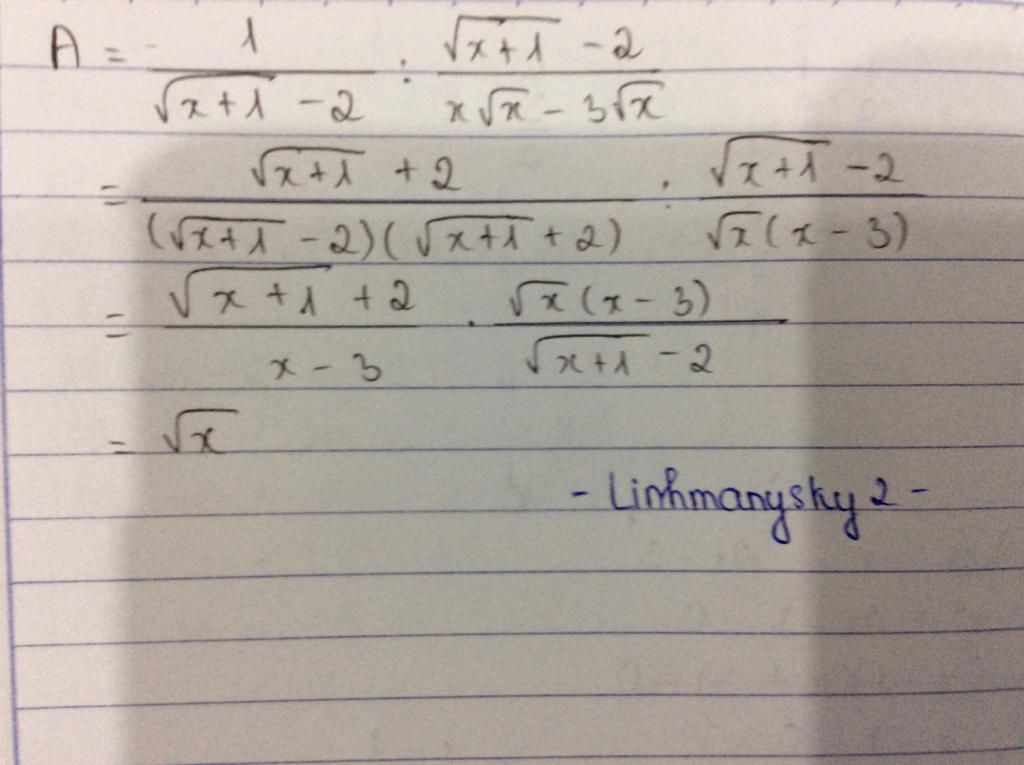 A = 1/(√(x+1) - 2) : (√(x+1) - 2)/(x√x - 3√x)
= (√(x+1) + 2)/((√(x+1) - 2)(√(x+1) + 2)) : (√(x+1) - 2)/(√x(x - 3))
= (√(x+1) + 2)/(x - 3) . (√x(x - 3))/(√(x+1) - 2)
= √x
- Linhmanysky 2 -